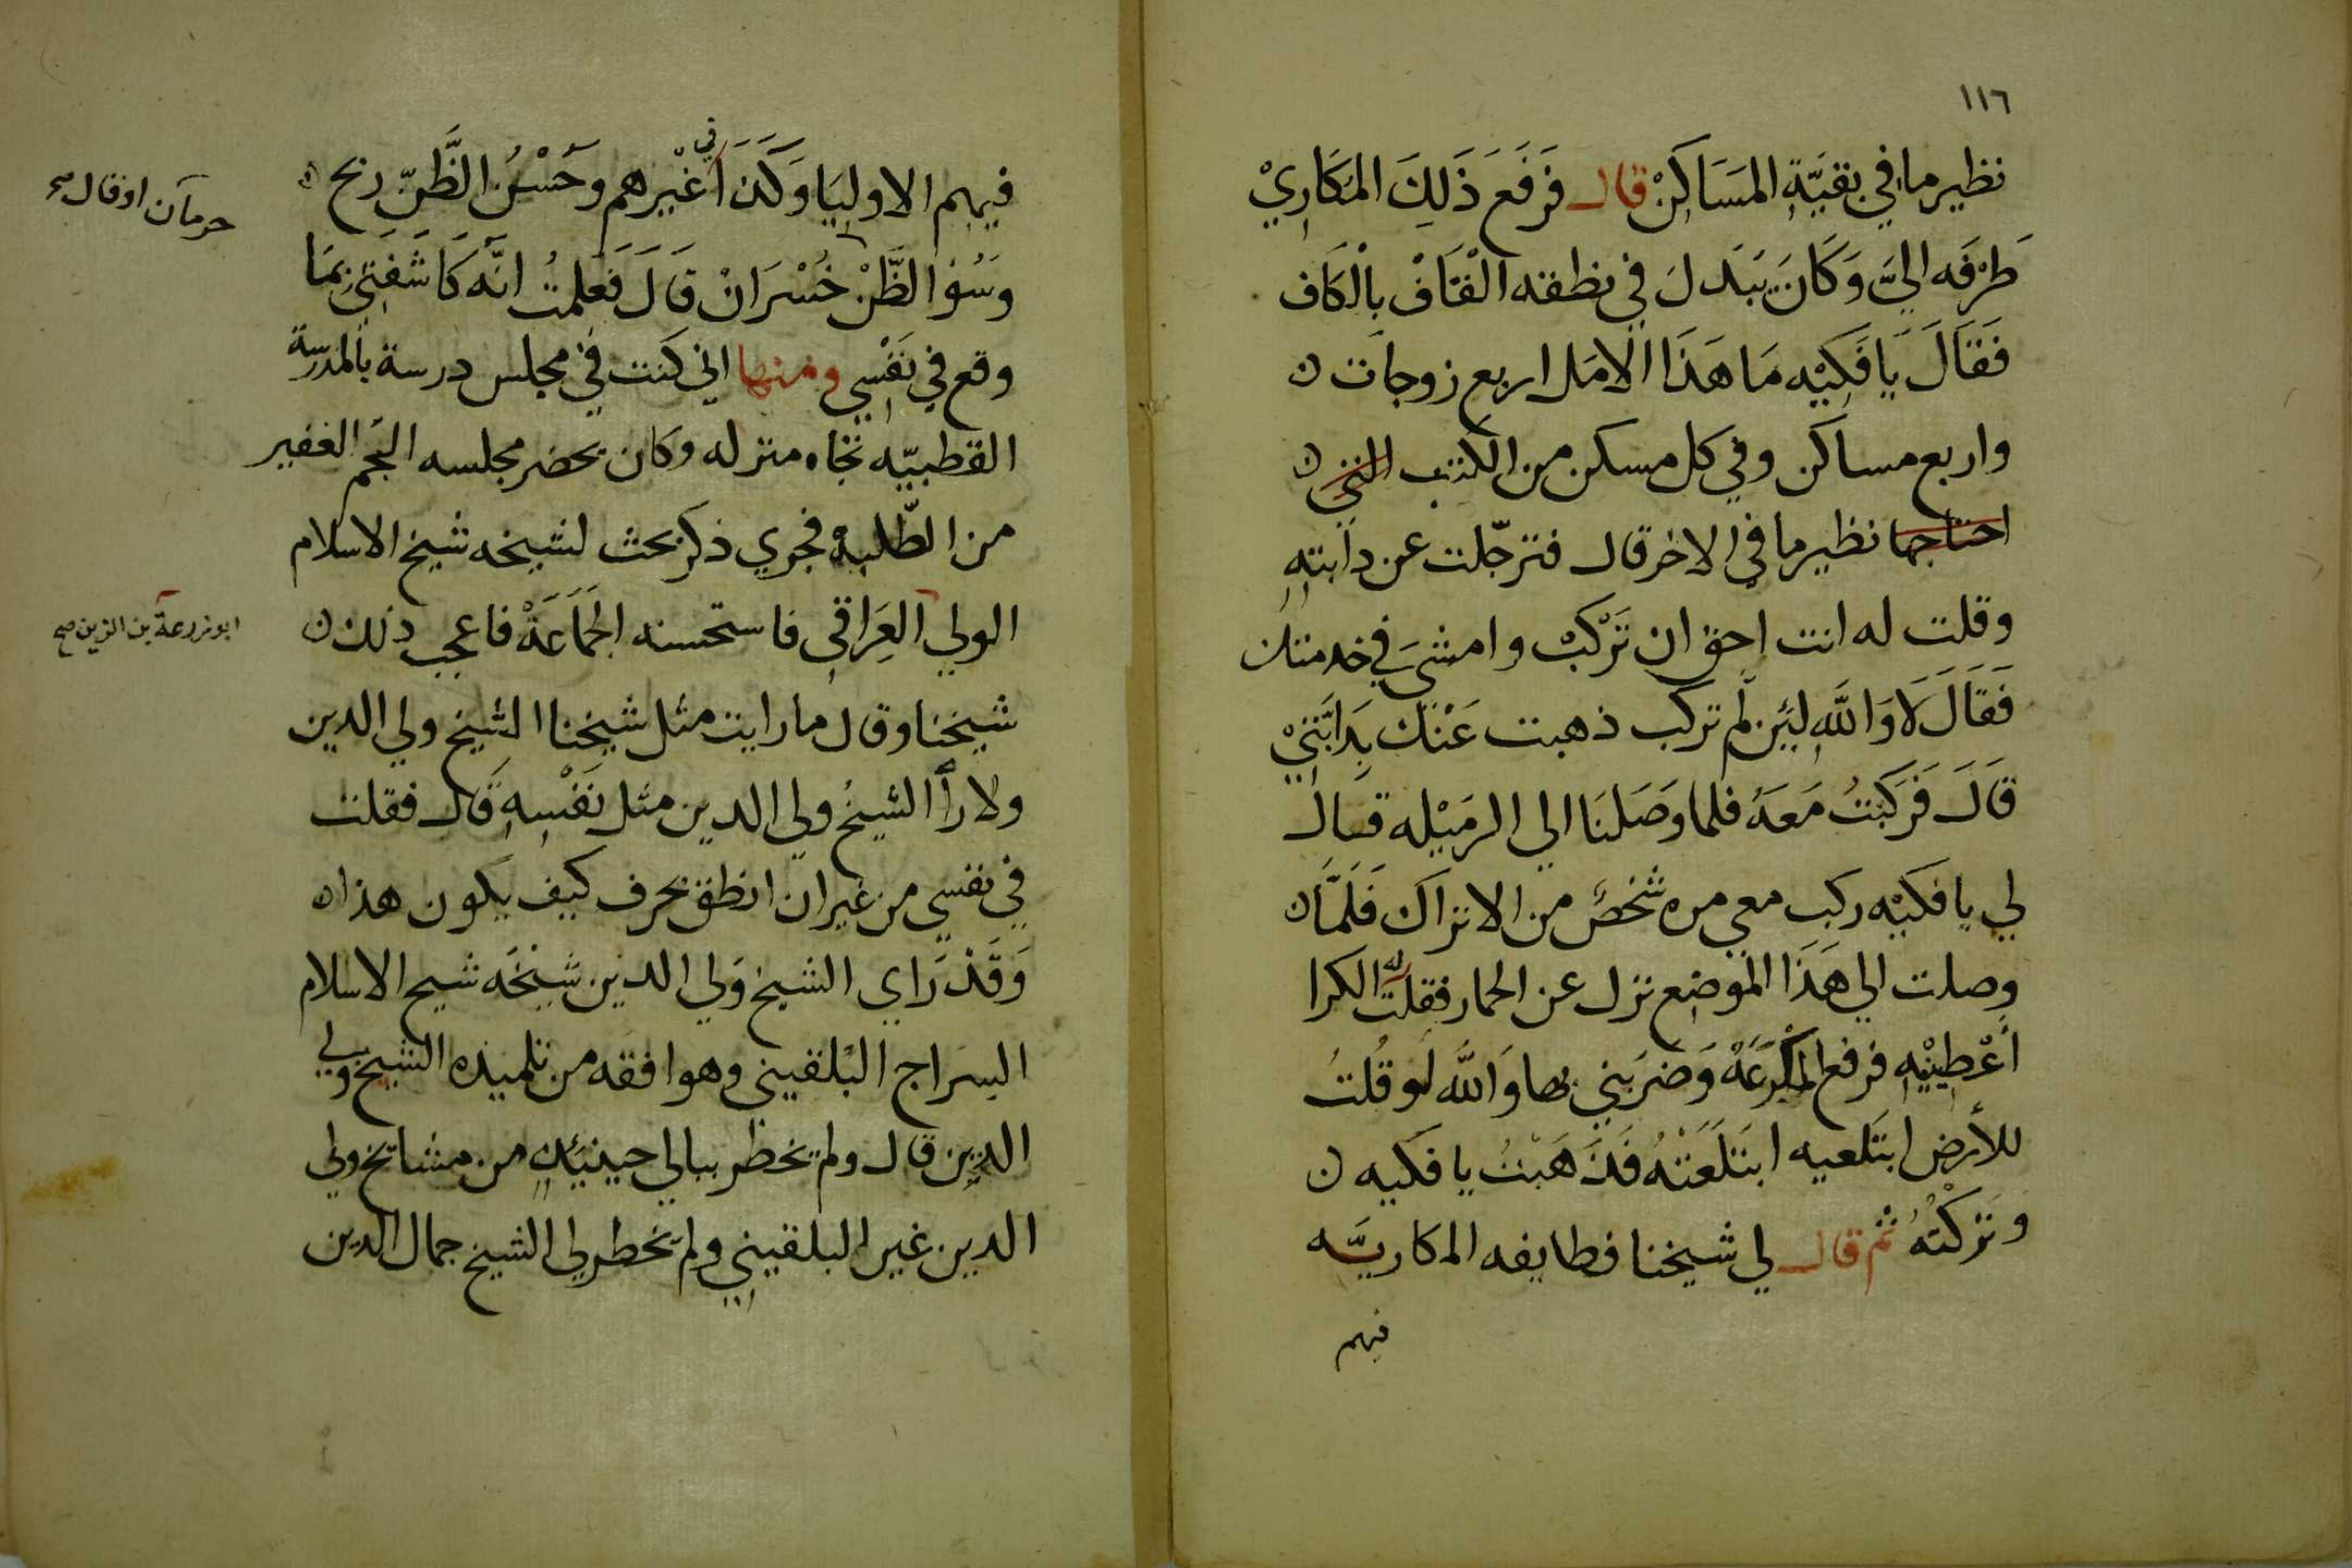 ١١٦
نظير ما في بقيَّةِ المسَاكِنْ قال فرَفَعَ ذَلِكَ المكَارِيْ
طَرْفَه اليَّ وَكَانَ يَبْدلَ في نطقه الْقَافْ بالْكَاف
فَقَالَ يَا فَكِيْه مَا هَذَا الامَل اربع زوجات
واربع مساكن وفي كل مسكن من الكتب التي
احتاجها نظير ما في الاخر قال فترجّلت عن دابتهِ
وقلت له انت احق ان تَرْكَبْ وامشيَ في خدمتك
فَقَالَ لَا وَاللَّهِ لَئِن لم تركب ذهبت عَنْكَ بِدَابَّتيْ
قَالَ فَرَكبْتُ مَعَهُ فلما وَصَلنَا الي الرمَيْله قال
لي يا فكيْه ركب معي مره شخصٌ من الاتراك فَلَمَّا
وصلت الي هَذَا الموضِع نزل عن الحمار فقلت له الكرا
أعْطِيْنِيْهِ فرفع المكْرَعَهْ وَضرَبَني بها وَاللَّه لَو قُلتُ
للأرض ابتَلعيه ابتَلَعَتْهُ فَذَهَبْتُ يا فكيه
وَتَرَكْتُهُ ثم قال لي شيخنا فطايفه المكاريَّه
فيهم
فيهم الاوليَا وَكَذَا في غَيْرهم وحَسْنُ الظَّنّ ربح
حرمان او قال صح
وَسُوا الظَّنْ خُسْرَانْ قَالَ فَعَلمتُ انَّه كَاشَفَنيْ بمَا
وقع في نَفْسِي ومنها اني كنت في مجلس درسة بالمدرسة
القطبيّه تجاه منزله وكان يحضر مجلسه الجَم الغفير
من الطّلبة فجري ذكر بحث لشيخه شيخ الاسلام
الولي العِرَاقي فاستحسنه الجَمَاعَهْ فاعجب ذلك
ابو زرعة بن الزين صح
شيخنا وقال ما رايت مثل شيخنا الشيخ ولي الدين
ولا رأ الشيخُ ولي الدين مثل نَفْسِهِ قال فقلت
في نفسي من غير ان انطق بحرف كيف يكون هذا
وَقَدْ رَاي الشيخ وَلي الدين شيْخَه شيخ الاسلام
السراج البُلقيني وهو افقه من تلميذه الشيخ ولي
الدِين قال ولم يخطر ببالي حينئذٍ من مشايخ ولي
الدين غير البلقيني ولم يخطر لي الشيخ جمال الدين